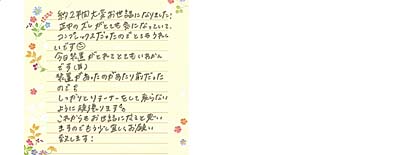 約2年間大変お世話になりました!
正中のズレがとても気になっていて、
コンプレックスだったのでとてもうれし
いです☺
今日装置がとれてとてもいわかん
です(笑)
装置があったのがあたり前だった
ので💦
しっかりとリテーナーをして戻らない
ように頑張ります。
これからもお世話になると思い
ますのでもう少し宜しくお願い
致します!